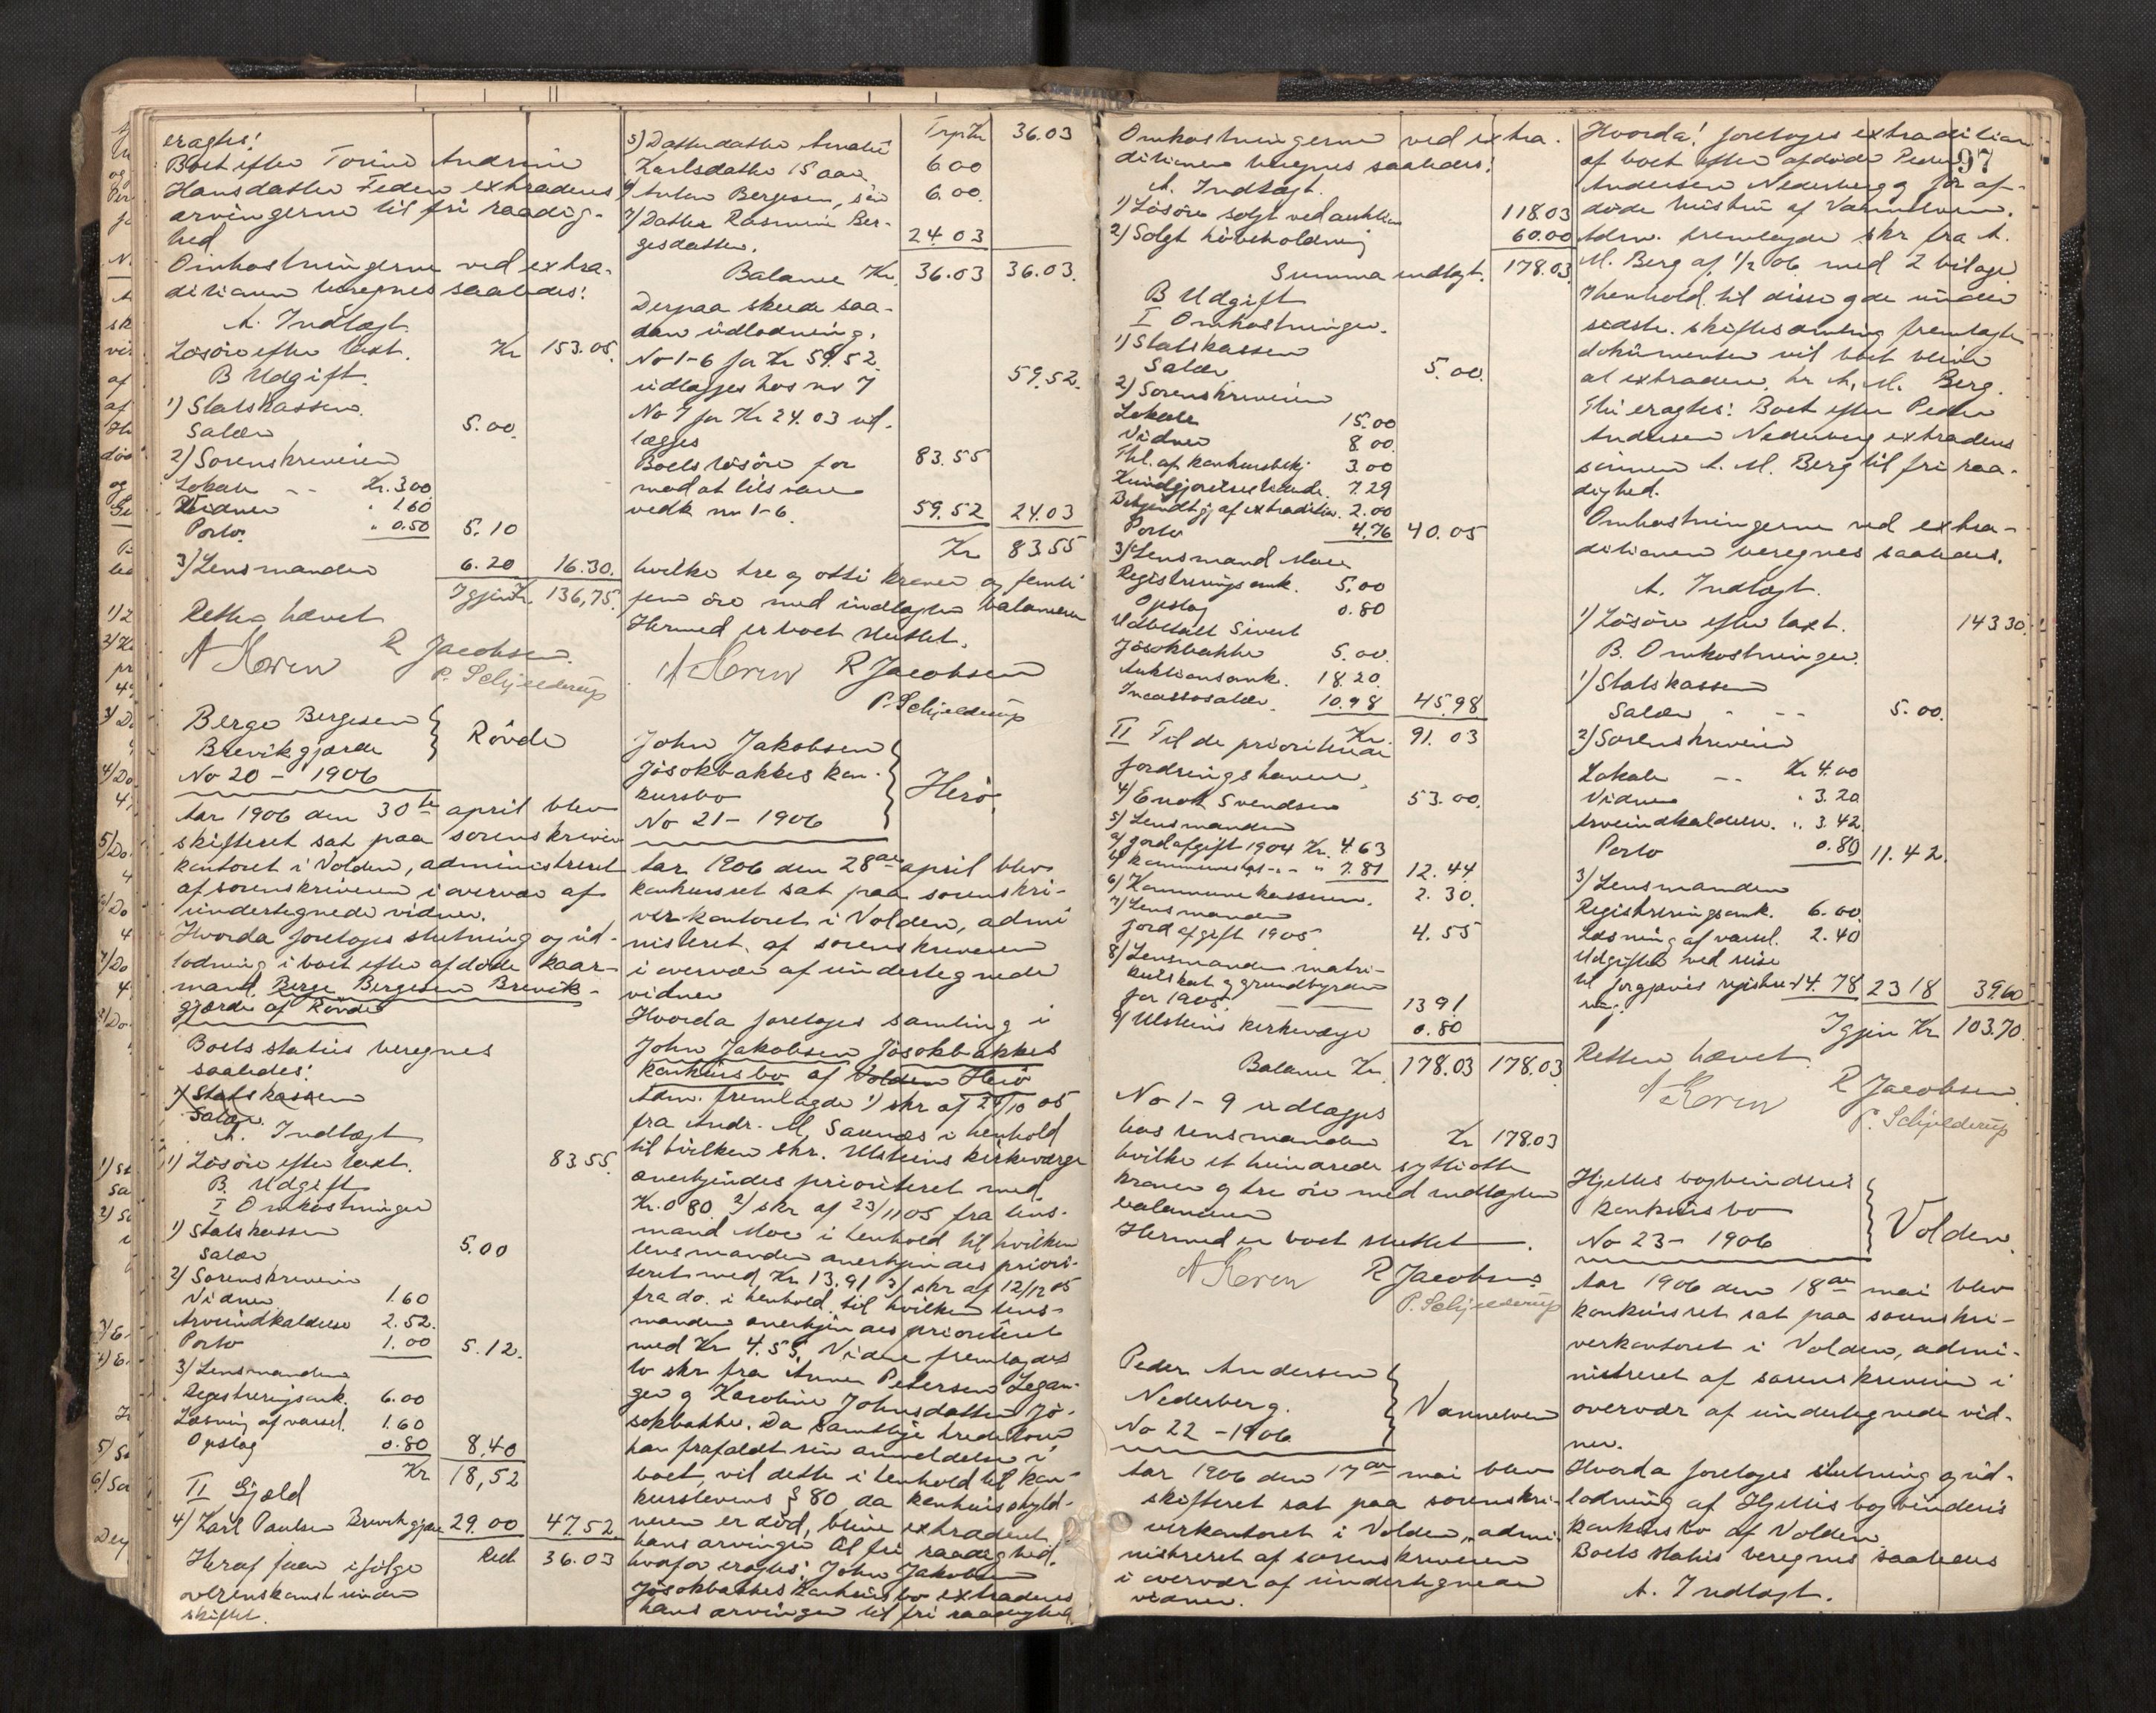 eragtes!
Boet efter Torine Andrine
Hansdatter Feden extraderes
arvingerne til fri raadig-
hed
Omkostningerne ved extra-
ditionen beregnes saaledes!
A. Indtægt.
Løsøre efter taxt. Kr 153.05.
B Udgift.
1) Statskassen.
Salær 5.00.
2) Sorenskriveren
Lokale -- Kr. 3.00
Vidner " 1.60
Porto. " 0.50 5.10
3) Lensmanden 6.20 16.30.
Igjen Kr. 136,75.
Retten hævet
A Koren R Jacobsen.
P. Schjelderup
Berge Bergesen
Brevikgjærde } Røvde
No 20 - 1906
Aar 1906 den 30te april blev
skifteret sat paa sorenskriver
kontoret i Volden, administreret
af sorenskriveren i overvær af
undertegnede vidner.
Hvorda foretoges slutning og ud-
lodning i boet efter afdøde kaar-
mand Berge Bergesen Brevik-
gjærde af Røvde
Boets status beregnes
saaledes!
1) Statskassen
Salær.
A. Indtægt
1) Løsøre efter taxt. 83.55.
B. Udgift
I Omkostninger
1) Statskassen
Salær 5.00
2) Sorenskriveren
Vidner 1.60
Arveindkaldelse 2.52.
Porto 1.00 5.12.
3) Lensmanden
Registreringsomk. 6.00
Læsning af varsel. 1.60
Opslag 0.80 8.40
Kr 18,52
II Gjæld
4) Karl Paulsen Brevikgjære 29.00 47.52.
Rest 36.03
Heraf faar ifølge
overenskomst under
skiftet.
Trp Kr 36.03
5) Datterdatter Amalie
Karlsdatter 15 aar 6.00
6) Anton Bergesen, søn 6.00.
7) Datter Rasmine Ber-
gesdatter. 24.03
Balance Kr. 36.03 36.03.
Derpaa skede saa-
dan udlodning.
No 1-6 for Kr 59.52.
udlægges hos no 7 59.52.
No 7 for Kr 24.03 ud-
lægges
Boets løsøre for 83.55
mod at tilsvare
vedk no 1-6. 59.52 24.03
Kr 83.55
hvilke tre og otti kroner og femti
fem øre med indtægten balancerer
Hermed er boet sluttet.
A Koren R Jacobsen
P. Schjelderup
John Jakobsen
Jøsokbakkes kon-
kursbo } Herø
No 21 - 1906
Aar 1906 den 28de april blev
konkursret sat paa sorenskri-
verkontoret i Volden, admi
nisteret af sorenskriveren
i overvær af undertegnede
vidner
Hvorda foretoges samling i
John Jakobsen Jøsokbakkes
konkursbo af Volden Herø
Adm. fremlagde 1) skr af 24/10 05
fra Andr. M. Saunæs i henhold
til hvilken skr. Ulsteins kirkeværge
anerkjendes prioriteret med
Kr. 0.80 2) skr af 23/11 05 fra lens-
mand Moe i henhold til hvilken
lensmanden anerkjendes priori-
teret med Kr. 13.91 3) skr af 12/12 05
fra do. i henhold til hvilken lens-
manden anerkjendes prioriteret
med Kr 4.55. Videre fremlagdes
to skr fra Anne Petersen Legan-
ger og Karoline Johnsdatter Jø-
sokbakke. Da samtlige kreditorer
har frafaldt sin anmeldelse i
boet, vil dette i henhold til kon-
kurslovens § 80 da konkursskyld-
neren er død, blive extraderet
hans arvinger til fri raadighed.
hvorfor eragtes: John Jakobsen
Jøsokbakkes konkursbo extraderes
hans arvinger til fri raadighed
Omkostningerne ved extra-
ditionen beregnes saaledes!
A. Indtægt.
1) Løsøre solgt ved auktion 118.03
2) Solgt høbeholdning 60.00
Summa indtægt. 178.03
B Udgift
I Omkostninger.
1) Statskassen
Salær 5.00.
2) Sorenskriveren
Lokale 15.00
Vidner 8.00
Thl. af konkursbekj 3.00
Kundgjørelsestidende. 7.29
Bekjendtgj af extradition. 2.00
Porto 4.76 40.05
3) Lensmand Moe
Registreringsomk. 5.00
Opslag 0.80
Udbetalt Sivert
Jøsokbakke 5.00.
Auktionsomk. 18.20.
Incassosalær. 10.98 45.98
Kr. 91.03
II Til de prioriterede
fordringshavere
4) Enok Svendsen 53.00.
5) Lensmanden
a) jordafgift 1904 Kr. 4.63
b) kommuneskat -"- " 7.81 12.44.
6) Kommunekassen. 2.30.
7) Lensmanden
jordafgift 1905. 4.55
8) Lensmanden matri-
kulskat og grundbyrder
for 1905. 13.91
9) Ulsteins kirkeværge 0.80
Balance Kr. 178.03 178.03
No 1-9 udlægges
hos lensmanden Kr 178.03
hvilke et hundrede syttiotte
kroner og tre øre med indtægten
balancerer
Hermed er boet sluttet.
A Koren R Jacobsen
P. Schjelderup
Peder Andersen
Nederberg. } Vannelven
No 22 - 1906
Aar 1906 den 17de mai blev
skifteret sat paa sorenskri-
verkontoret i Volden, admi-
nistreret af sorenskriveren
i overvær af undertegnede
vidner.
97
Hvorda! foretoges extradition
af boet efter afdøde Peder
Andersen Nederberg og før af-
døde hustru af Vannelven.
Adm. fremlagde skr fra A.
M. Berg af 1/2 06 med 2 bilage
I henhold til disse og de under
sidste skiftesamling fremlagte
dokumenter vil boet blive
at extradere hr A. M. Berg.
Thi eragtes: Boet efter Peder
Andersen Nederberg extraderes
sønnen A. M. Berg til fri raa-
dighed.
Omkostningerne ved extra-
ditionen beregnes saaledes.
A. Indtægt.
1) Løsøre efter taxt. 143.30.
B. Omkostninger.
1) Statskassen
Salær - -- 5.00.
2) Sorenskriveren
Lokale -- Kr 4.00
Vidner " 3.20
Arveindkaldelse. " 3.42
Porto 0.80 11.42.
3) Lensmanden
Registreringsomk. 6.00
Læsning af varsel. 2.40
Udgifter ved reise
til forgjæves registre- 14.78 23.18 39.60
ring.
Igjen Kr 103.70.
Retten hævet.
A Koren R Jacobsen.
P. Schjelderup
Hjellis bogbinderis
konkursbo } Volden.
No 23 - 1906
Aar 1906 den 18de mai blev
konkursret sat paa sorenskri-
verkontoret i Volden, admi-
nistreret af sorenskriveren i
overvær af undertegnede vid-
ner.
Hvorda foretoges slutning og ud-
lodning af Hjellis bogbinderis
konkursbo af Volden
Boets status beregnes saaledes
A. Indtægt.